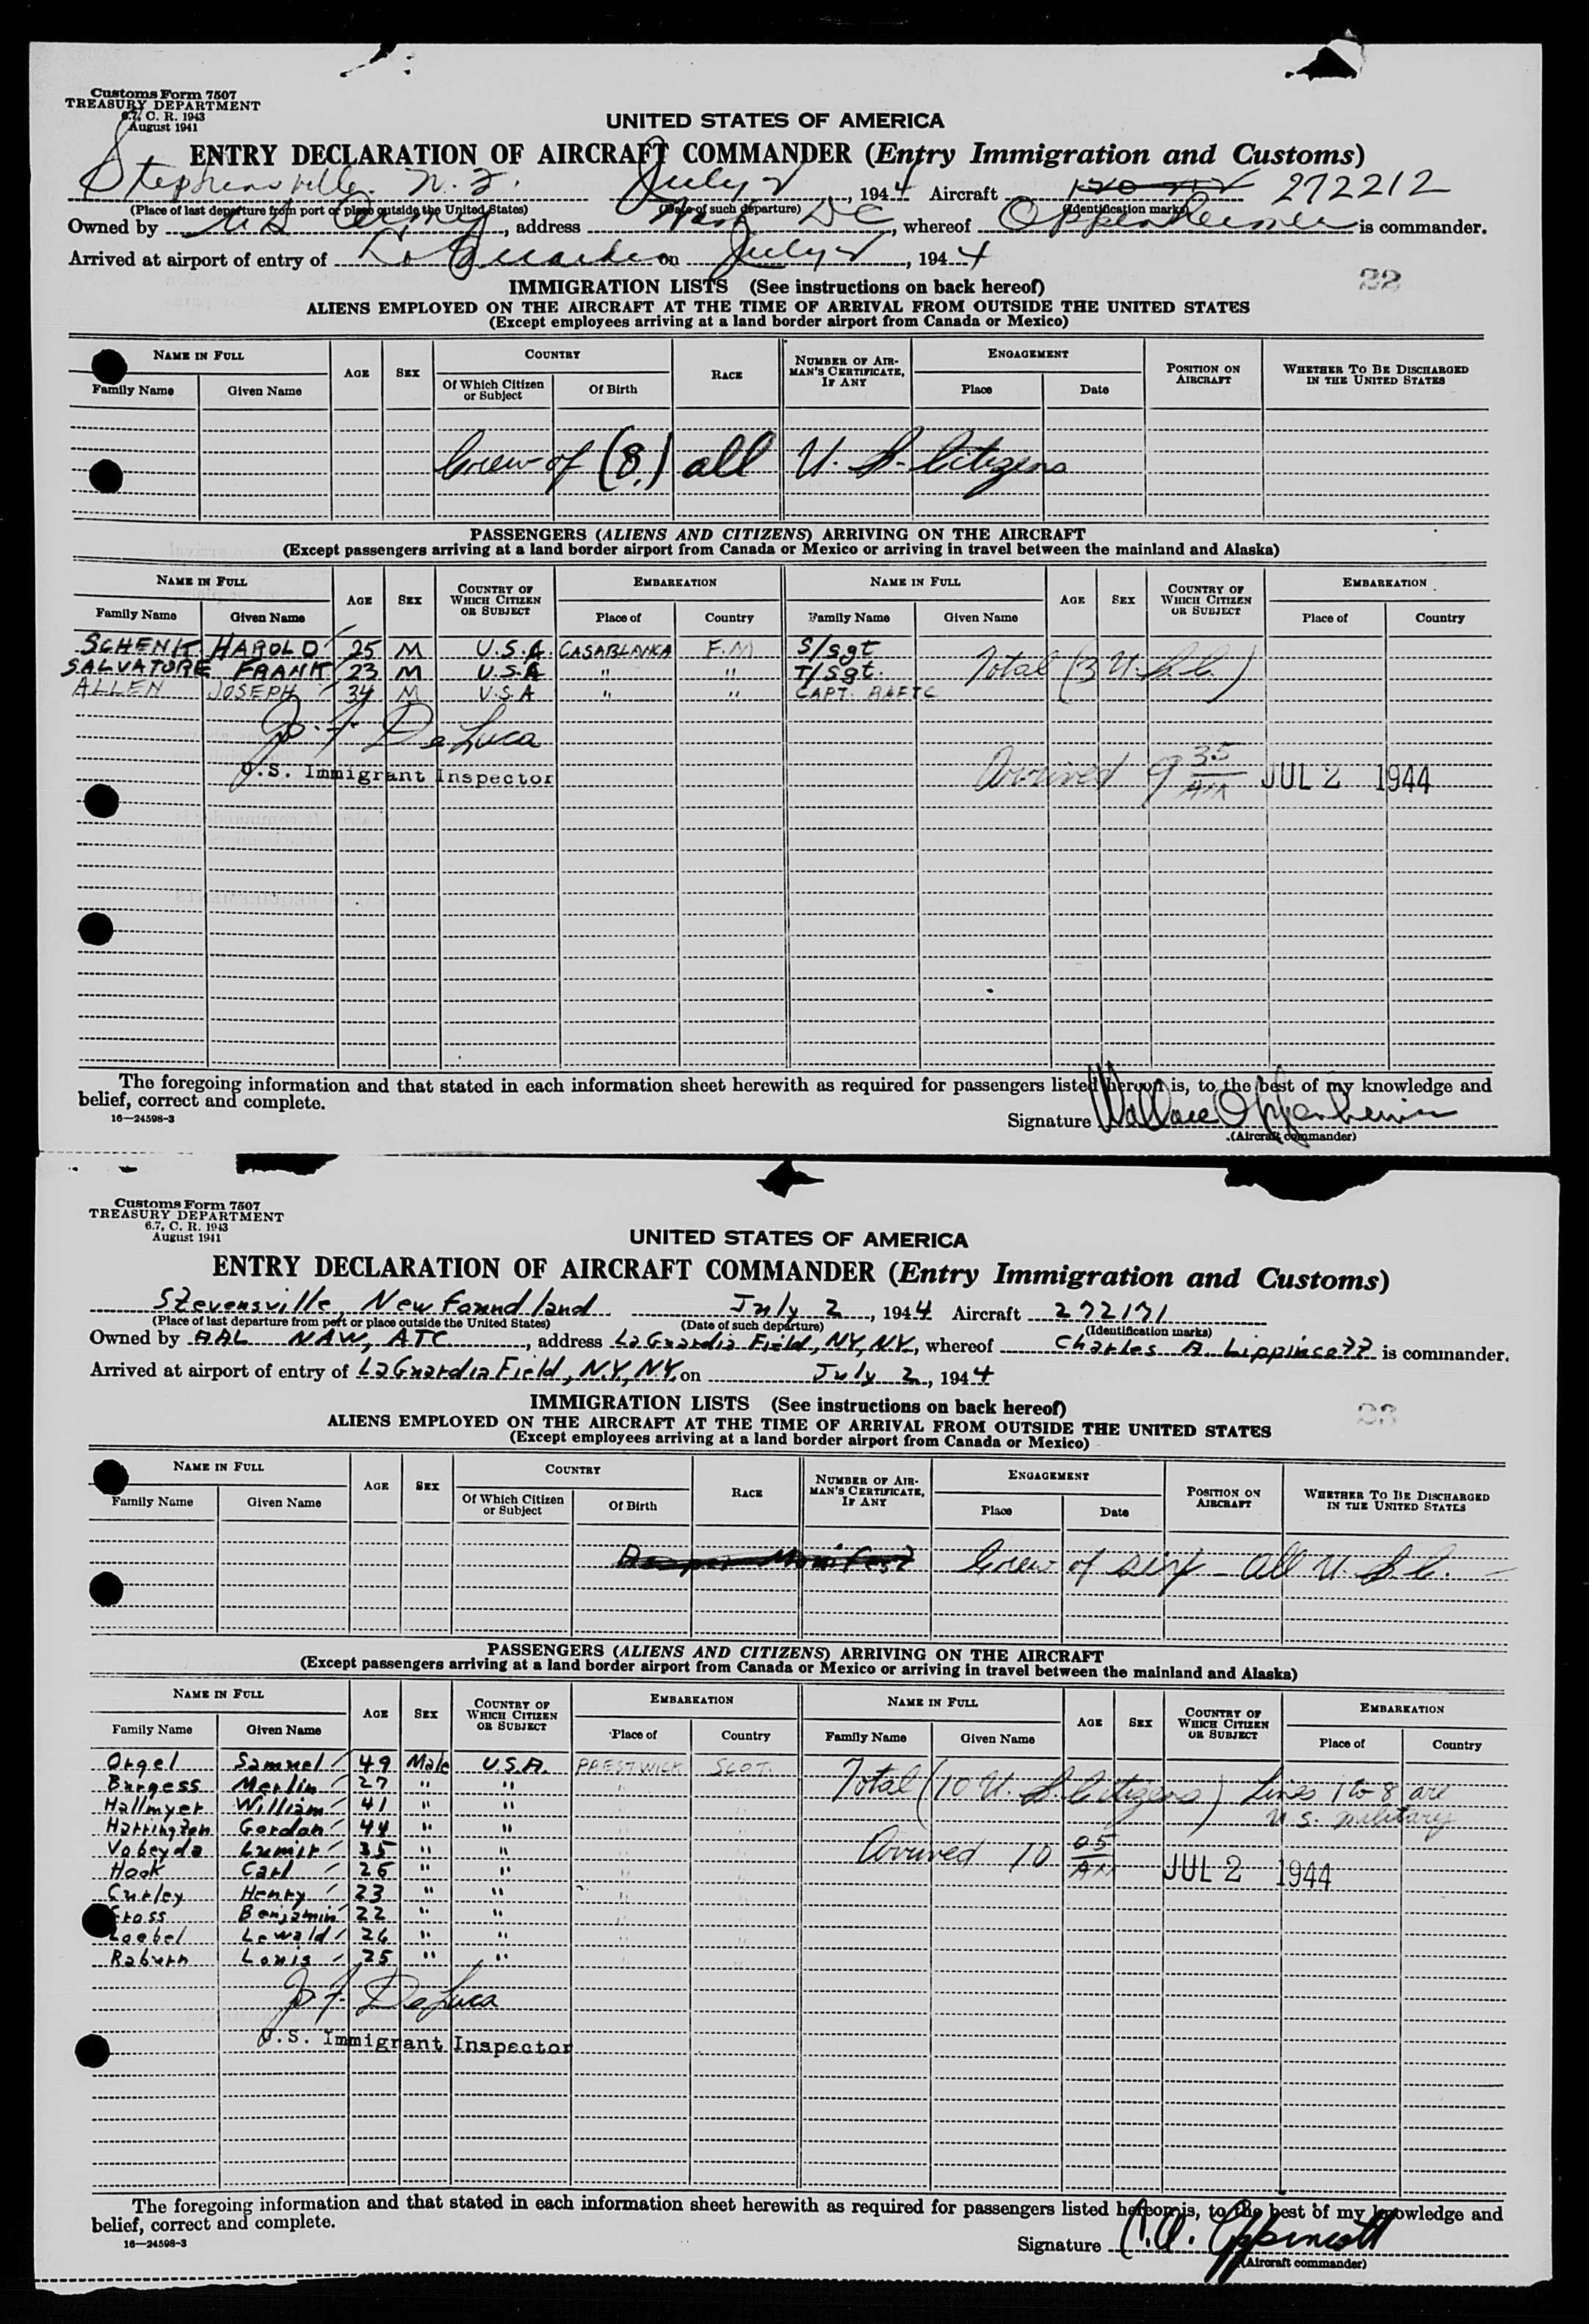 Customs Form 7507
TREASURY DEPARTMENT
6.7, C. R. 1943
August 1941
UNITED STATES OF AMERICA
ENTRY DECLARATION OF AIRCRAFT COMMANDER (Entry Immigration and Customs)
Stephensville. N. F. July 2, 1944 Aircraft 272212
(Place of last departure from port or place outside the United States) (Date of such departure) (Identification marks)
Owned by US Army, address Wash DC, whereof Oppenheimer is commander.
Arrived at airport of entry of La Guardia on July 2, 1944
IMMIGRATION LISTS (See instructions on back hereof)
22
ALIENS EMPLOYED ON THE AIRCRAFT AT THE TIME OF ARRIVAL FROM OUTSIDE THE UNITED STATES
(Except employees arriving at a land border airport from Canada or Mexico)
NAME IN FULL AGE SEX COUNTRY RACE NUMBER OF AIRMAN'S CERTIFICATE, IF ANY ENGAGEMENT POSITION ON AIRCRAFT WHETHER TO BE DISCHARGED IN THE UNITED STATES
Family Name Given Name Of Which Citizen or Subject Of Birth Place Date
Crew of (8.) all U. S. Citizens
PASSENGERS (ALIENS AND CITIZENS) ARRIVING ON THE AIRCRAFT
(Except passengers arriving at a land border airport from Canada or Mexico or arriving in travel between the mainland and Alaska)
NAME IN FULL AGE SEX COUNTRY OF WHICH CITIZEN OR SUBJECT EMBARKATION NAME IN FULL AGE SEX COUNTRY OF WHICH CITIZEN OR SUBJECT EMBARKATION
Family Name Given Name Place of Country Family Name Given Name Place of Country
SCHENK HAROLD 25 M U.S.A. CASABLANCA F.M S/sgt
SALVATORE FRANK 23 M U.S.A " " T/Sgt. Total (3 U.S.C.)
ALLEN JOSEPH 34 M U.S.A " " CAPT.
Jo. F. DeLuca
U.S. Immigrant Inspector
Arrived 9 35 AM JUL 2 1944
The foregoing information and that stated in each information sheet herewith as required for passengers listed hereon is, to the best of my knowledge and
belief, correct and complete.
16—24598-3
Signature Wallace Oppenheimer
(Aircraft commander)
Customs Form 7507
TREASURY DEPARTMENT
6.7, C. R. 1943
August 1941
UNITED STATES OF AMERICA
ENTRY DECLARATION OF AIRCRAFT COMMANDER (Entry Immigration and Customs)
Stevensville, Newfoundland July 2, 1944 Aircraft 272171
(Place of last departure from port or place outside the United States) (Date of such departure) (Identification marks)
Owned by AAL NAW, ATC, address LaGuardia Field, NY, N.Y., whereof Charles A. Lippincott is commander.
Arrived at airport of entry of LaGuardia Field, N.Y., N.Y. on July 2, 1944
IMMIGRATION LISTS (See instructions on back hereof)
23
ALIENS EMPLOYED ON THE AIRCRAFT AT THE TIME OF ARRIVAL FROM OUTSIDE THE UNITED STATES
(Except employees arriving at a land border airport from Canada or Mexico)
NAME IN FULL AGE SEX COUNTRY RACE NUMBER OF AIRMAN'S CERTIFICATE, IF ANY ENGAGEMENT POSITION ON AIRCRAFT WHETHER TO BE DISCHARGED IN THE UNITED STATES
Family Name Given Name Of Which Citizen or Subject Of Birth Place Date
Crew of six - all U. S. C.
PASSENGERS (ALIENS AND CITIZENS) ARRIVING ON THE AIRCRAFT
(Except passengers arriving at a land border airport from Canada or Mexico or arriving in travel between the mainland and Alaska)
NAME IN FULL AGE SEX COUNTRY OF WHICH CITIZEN OR SUBJECT EMBARKATION NAME IN FULL AGE SEX COUNTRY OF WHICH CITIZEN OR SUBJECT EMBARKATION
Family Name Given Name Place of Country Family Name Given Name Place of Country
Orgel Samuel 49 Male U.S.A. PRESTWICK SCOT.
Burgess Merlin 27 " " Total (10 U. S. Citizens) Lines 1 to 8 are
Hallmyer William 41 " " U. S. military
Harrington Gordon 44 " "
Vobeyda Lumir 35 " " Arrived 10 05 AM JUL 2 1944
Hook Carl 25 " "
Curley Henry 23 " "
Benjamin 22 " "
Loebel Lewald 26 " "
Raburn Louis 25 " "
Jo. F. DeLuca
U.S. Immigrant Inspector
The foregoing information and that stated in each information sheet herewith as required for passengers listed hereon is, to the best of my knowledge and
belief, correct and complete.
16—24598-3
Signature C. A. Lippincott
(Aircraft commander)